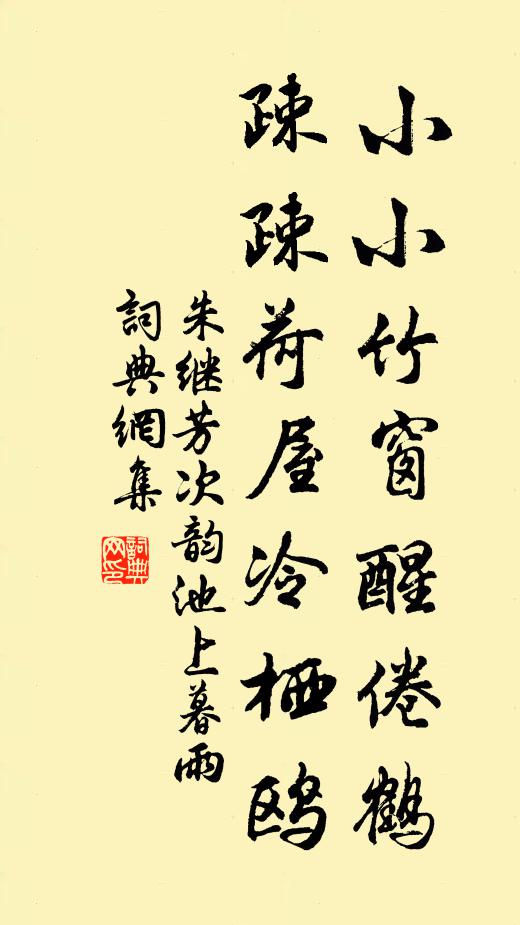 小小竹窗醒倦鶴
疎疎荷屋冷栖鸥
朱继芳次韵池上暮雨
詞典網集
詞典网印